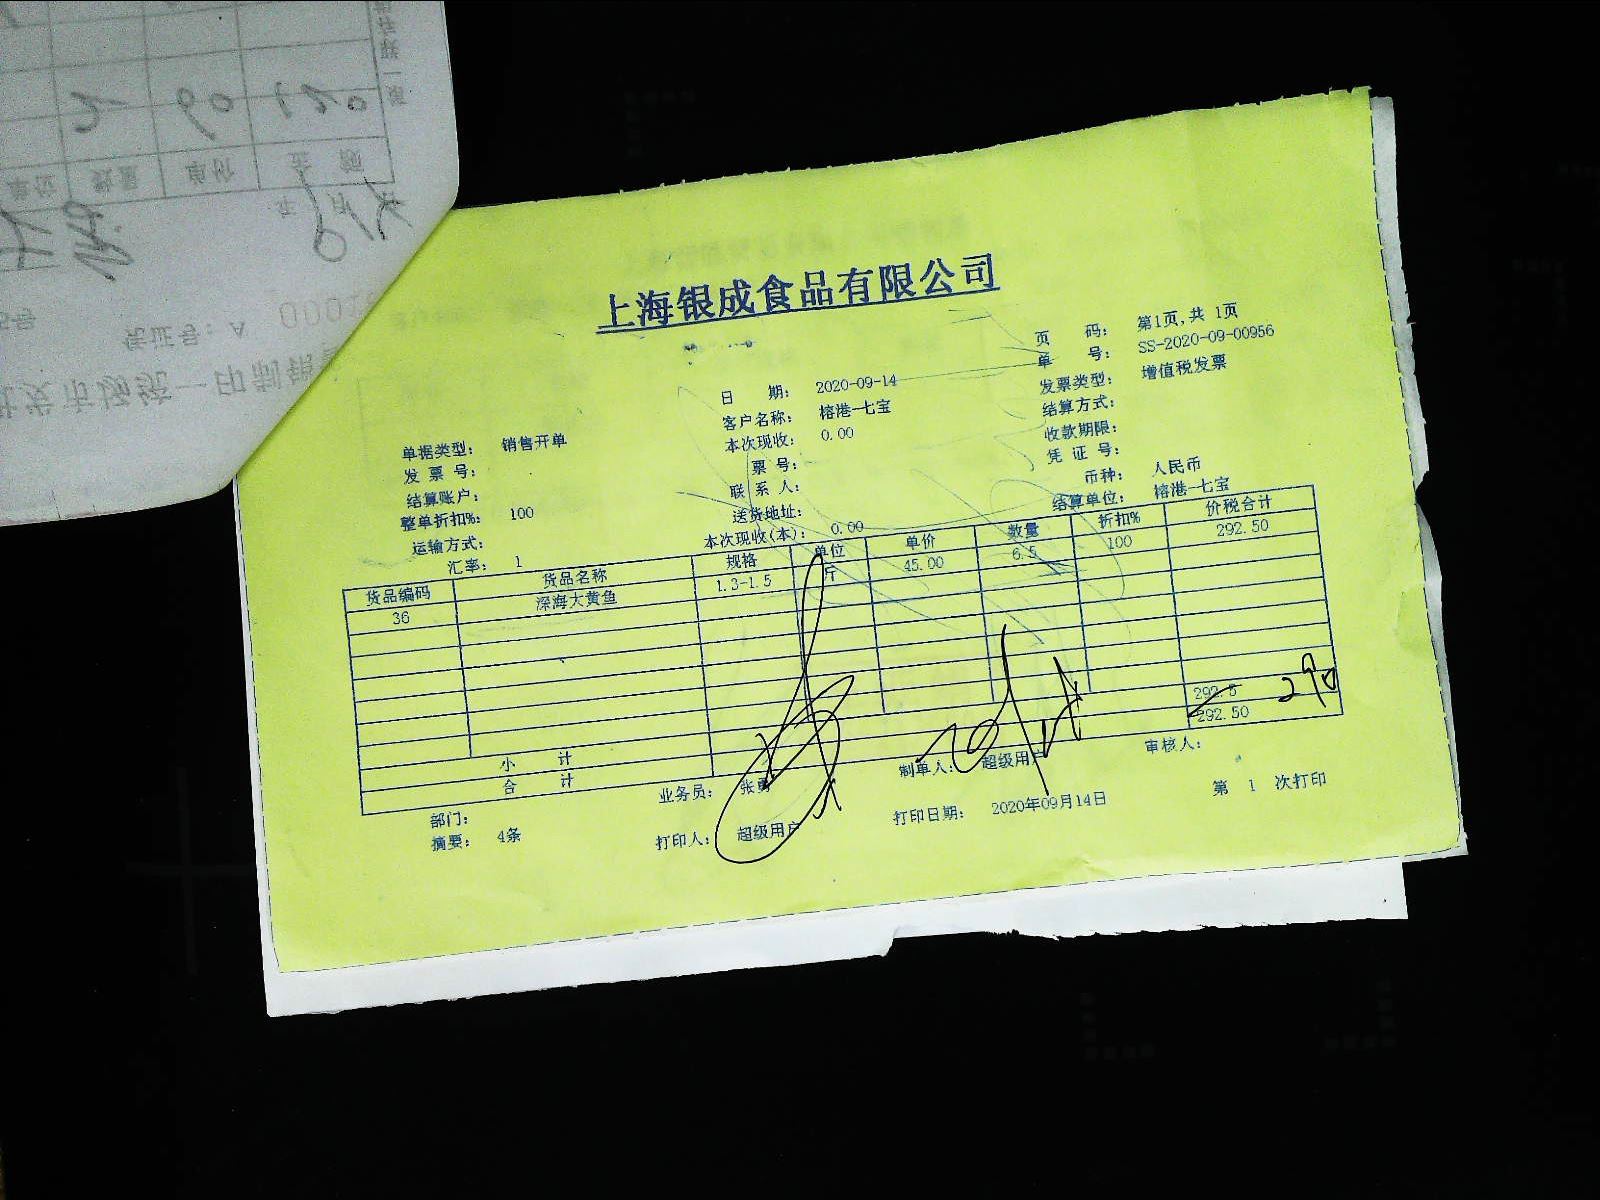 上海银成食品有限公司
页 码： 第1页,共 1页
日 期： 2020-09-14 单 号： SS-2020-09-00956
客户名称： 榕港一七宝 发票类型： 增值税发票
单据类型： 销售开单 本次现收： 0.00 结算方式：
发 票 号： 票 号： 收款期限：
结算账户： 联 系 人： 凭 证 号：
整单折扣%： 100 送货地址： 币种： 人民币
运输方式： 本次现收(本)： 0.00 结算单位： 榕港一七宝
汇率： 1
货品编码 货品名称 规格 单位 单价 数量 折扣% 价税合计
36 深海大黄鱼 1.3-1.5 斤 45.00 6.5 100 292.50
小 计 292.5 290
合 计 292.50
部门： 业务员： 张勇 制单人： 超级用户 审核人：
摘要： 4条 打印人： 超级用户 打印日期： 2020年09月14日 第 1 次打印
单位 数量 单价 金 额
2 60 120
凭证号：A 000
批发市场统一印制销